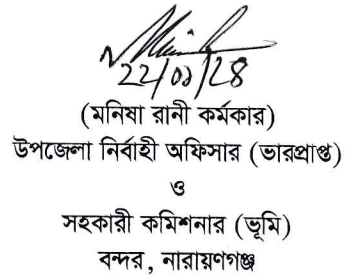 (মনিষা রানী কর্মকার)
উপজেলা নির্বাহী অফিসার (ভারপ্রাপ্ত)
ও
সহকারী কমিশনার (ভূমি)
বন্দর, নারায়ণগঞ্জ